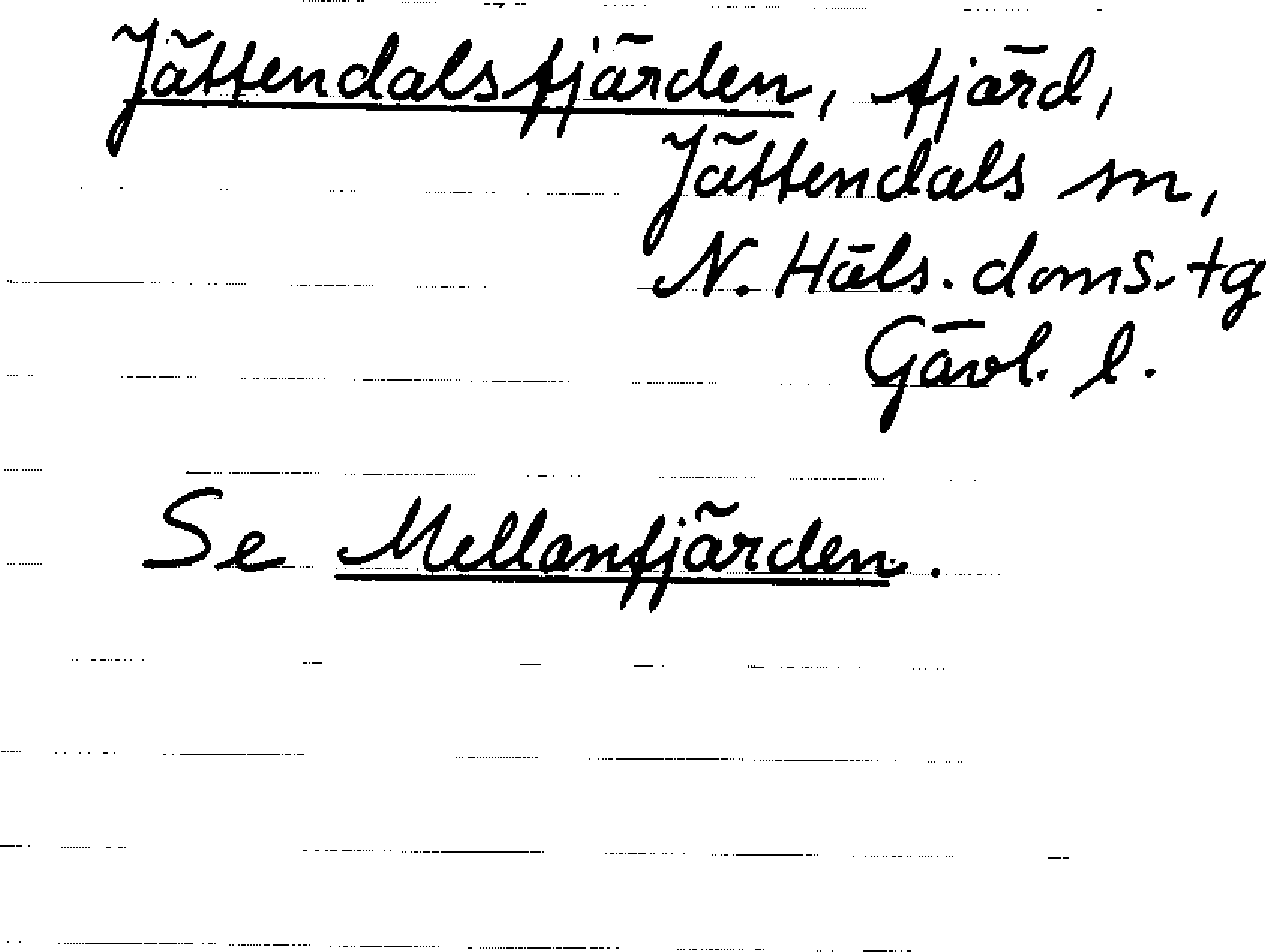 Jättendalsfjärden, fjärd,
Jättendals sn,
N. Häls. doms. tg
Gävl. l.
Se Mellanfjärden.